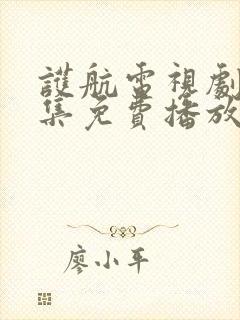 護航電視劇
集免費播放
廖小平